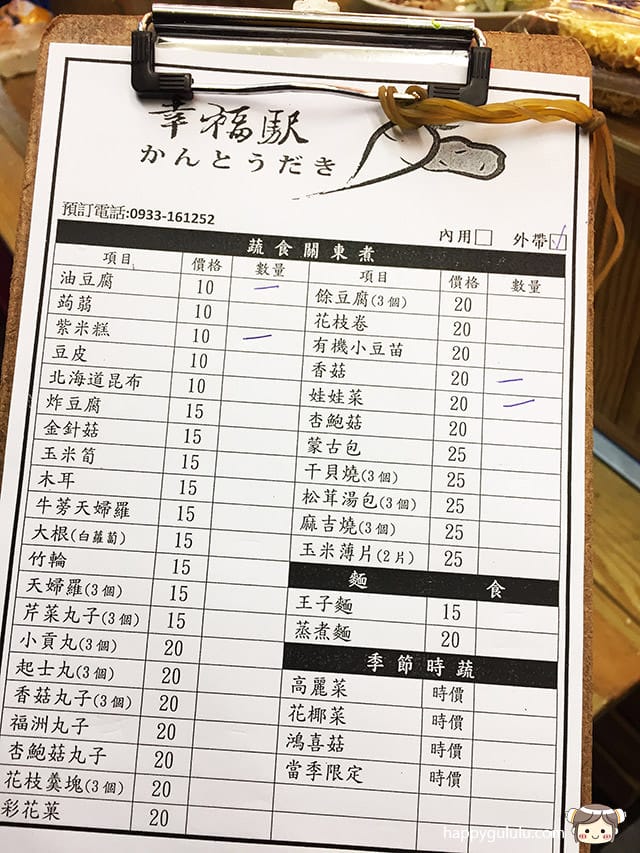 幸福駅
かんとうだき
預訂電話:0933-161252
內用□ 外帶□
蔬食關東煮
項目 價格 數量
油豆腐 10
蒟蒻 10
紫米糕 10
豆皮 10
北海道昆布 10
炸豆腐 15
金針菇 15
玉米筍 15
木耳 15
牛蒡天婦羅 15
大根(白蘿蔔) 15
竹輪 15
天婦羅(3個) 15
芹菜丸子(3個) 15
小貢丸(3個) 20
起士丸(3個) 20
香菇丸子(3個) 20
福洲丸子 20
杏鮑菇丸子 20
花枝羹塊(3個) 20
彩花菓 20
項目 價格 數量
餘豆腐(3個) 20
花枝卷 20
有機小豆苗 20
香菇 20
娃娃菜 20
杏鮑菇 20
蒙古包 25
干貝燒(3個) 25
松茸湯包(3個) 25
麻吉燒(3個) 25
玉米薄片(2片) 25
麵食
王子麵 15
蒸煮麵 20
季節時蔬
高麗菜 時價
花椰菜 時價
鴻喜菇 時價
當季限定 時價
happygululu.com